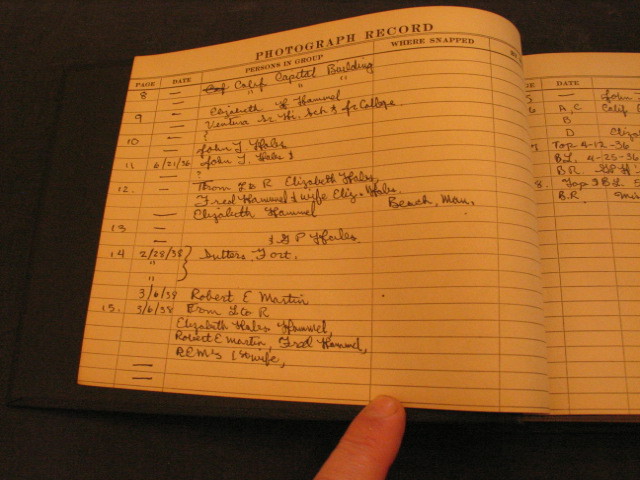 PHOTOGRAPH RECORD
PAGE DATE PERSONS IN GROUP WHERE SNAPPED
8 — Calif Capital Building
— " " "
— Elizabeth H Hammel
9 — Ventura Sr. Hi. Sch & Jr College
— ?
10 — John T Hales
11 6/21/36 John T. Hales &
— ?
12. — From L to R Elizabeth Hales,
Fred Hammel & wife Eliz. Hales.
— Elizabeth Hammel Beach, Man.
13 —
— & G P Hales
14 2/28/38 } Sutters Fort.
"
"
3/6/38 Robert E Martin
15. 3/6/38 From L to R
Elizabeth Hales Hammel,
Robert E Martin, Fred Hammel,
R.E.M's 1st wife,
—
—
DATE
— John
A, C Calif
B
D Eliza
Top 4-12-36
B.L. 4-25-36
B.R.
8. Top & B.L.
B.R.